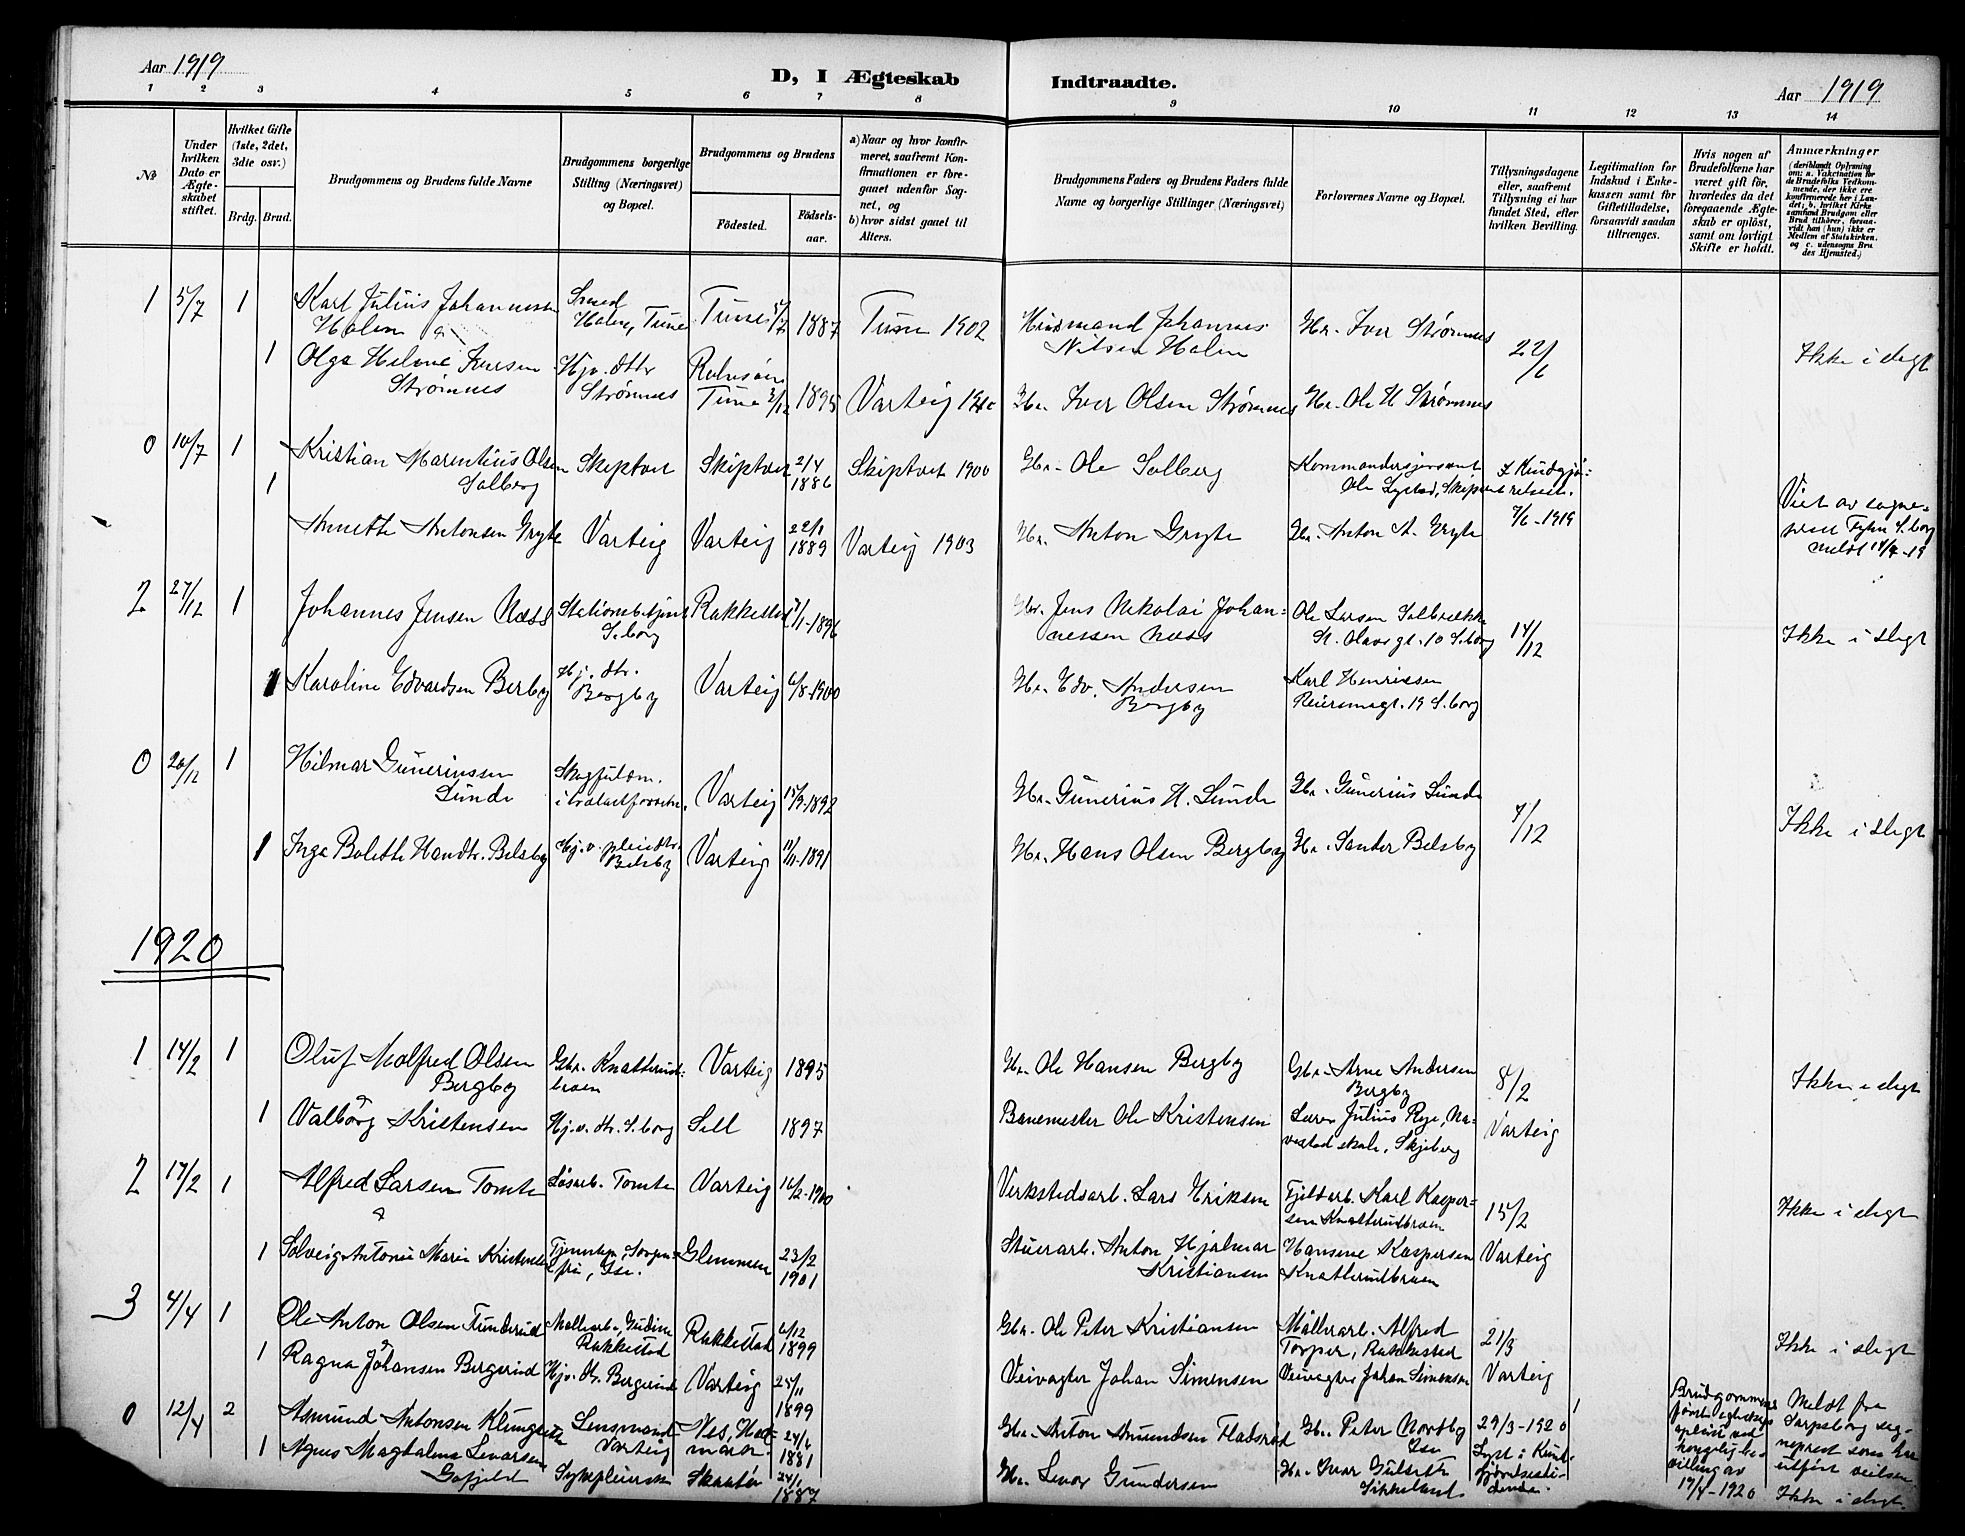 Aar 1919
D, I Ægteskab Indtraadte.
Aar 1919
1 2 3 4 5 6 7 8 9 10 11 12 13 14
No.
Under hvilken Dato er Ægteskabet stiftet.
Hvilket Gifte (1ste, 2det, 3die osv.)
Brdg. Brud.
Brudgommens og Brudens fulde Navne
Brudgommens borgerlige Stilling (Næringsvei) og Bopæl.
Brudgommens og Brudens
Fødested.
Fødselsaar.
a) Naar og hvor konfirmeret, saafremt Konfirmationen er foregaaet udenfor Sognet, og
b) hvor sidst gaaet til Alters.
Brudgommens Faders og Brudens Faders fulde Navne og borgerlige Stillinger (Næringsvei)
Forlovernes Navne og Bopæl.
Tillysningsdagene eller, saafremt Tillysning ei har fundet Sted, efter hvilken Bevilling.
Legitimation for Indskud i Enkekassen samt for Giftetilladelse, forsaavidt saadan tiltrænges.
Hvis nogen af Brudefolkene har været gift før, hvorledes da det foregaaende Ægteskab er opløst, samt om lovligt Skifte er holdt.
Anmærkninger
(deriblandt Oplysning om: a. Vakcination for de Brudefolks Vedkommende, der ikke ere konfirmerede her i Landet; b. hvilket Kirkesamfund Brudgom eller Brud tilhører, forsaavidt han (hun) ikke er Medlem af Statskirken, og c. udensogns Brudes Hjemsted.)
1 5/7 1 Karl Julius Johannessen Holm Smed Holm, Tune Tune 5/12 1887 Tune 1902 Husmand Johannes Nilsen Holm Gbr. Iver Strømnes 22/6 Ikke i slegt
1 Olga Helene Iversen Strømnes Hjv. dtr Strømnes Rolvsøen Tune 3/12 1895 Varteig 1910 Gbr. Iver Olsen Strømnes Gbr. Ole H Strømnes
0 10/7 1 Kristian Marentius Olsen Solberg Skiptvet Skiptvet 2/4 1886 Skiptvet 1900 Gbr. Ole Solberg Kommandersjersant Ole Lystad, Skiptvet 7/6-1919
1 Annette Antonsen Gryte Varteig Varteig 22/1 1889 Varteig 1903 Gbr. Anton Gryte Gbr. Anton A. Gryte Viet av sogneprest S.borg meldt 14/7-19
2 27/12 1 Johannes Jensen Næss Stationsbetjent S.borg Rakkestad 7/1-1896 Gbr. Jens Nikolai Johannessen Næss Ole Larsen Solbrække St. Olavs gt. 10 S.borg 14/12 Ikke i slegt
1 Karoline Edvardsen Berby Hj. dtr. Bergby Varteig 6/8-1900 Gbr. Edv. Andersen Bergby Karl Henriksen Reiersensgt. 19 S.borg
0 20/12 1 Hilmar Guneriussen Sunde Skogfuldm. Varteig 15/9-1892 Gbr. Gunerius H. Sunde Gbr. Gunerius Sunde 7/12 Ikke i slegt
1 Inga Bolette Hansdtr. Belsby Hj.v. pleiedtr. Belsby Varteig 11/11-1891 Gbr. Hans Olsen Bergby Gbr. Santer Belsby
1920
1 14/2 1 Oluf Malfred Olsen Bergby Gbr. Knatterudbraen Varteig 1895 Gbr. Ole Hansen Bergby Gbr. Arne Andersen Bergby 8/2 Ikke i slegt
1 Valborg Kristensen Hj.v. dtr. S.borg Sell 1897 Banemester Ole Kristensen Lærer Julius Rye, Navestad skole, Skjeberg Varteig
2 17/2 1 Alfred Larsen Tomte Løsarb. Tomte Varteig 16/2-1900 Verkstedsarb. Lars Eriksen Fjeldarb. Karl Kaspersen Knatterudbraen 15/2 Ikke i slegt
1 Solveig Antonie Marie Kristensen Tjenestep., Sorgenfri, Ise. Glemmen 23/2 1901 Stuerarb. Anton Hjalmar Kristiansen Hansine Kaspersen Knatterudbraen Varteig
3 4/4 1 Ole Anton Olsen Tunderud Møllearb., Gudim Rakkestad Rakkestad 6/12 1899 Gbr. Ole Peter Kristiansen Møllerarb. Alfred Torper, Rakkestad 21/3 Ikke i slegt
1 Ragna Johansen Bergerud Hjv. dtr. Bergerud Varteig 25/11 1899 Veivagter Johan Simensen Veivagter Johan Simensen Varteig
0 12/4 2 Asmund Antonsen Klungseth Lensmand Varteig Nes, Hedmarken 24/6 1881 Gbr. Anton Amundsen Fladsrød Gbr. Peter Nordby Ise 29/3-1920 Lyst i Kundgjørelsestidende. 1 Brudgommens første egteskap opløst ved kongelig bevilling av 17/4-1920 Meldt fra Sarpsborg sogneprest som har utført vielsen
1 Agnes Magdalena Levorsen Gofjeld Sykepleierske Skaatø 24/1 1887 Gbr. Levor Gundersen Gbr. Ivar Gulseth Sikkeland Ikke i slegt.